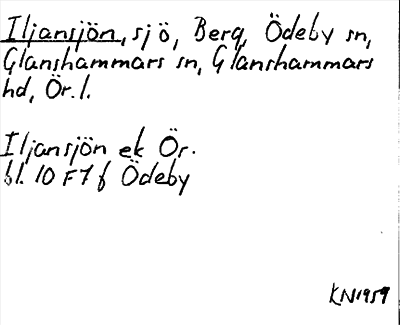 Iljansjön, sjö, Berg, Ödeby sn,
Glanshammars sn, Glanshammars
hd, Ör.l.
Iljansjön ek Ör.
bl. 10 F7 f Ödeby
KN1959